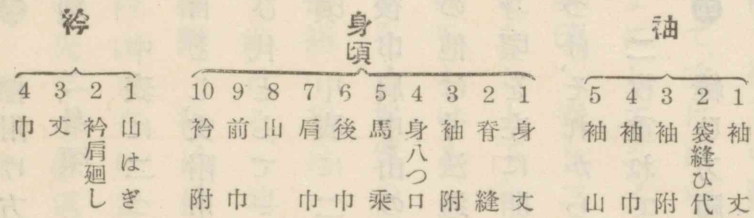 袖
1 袖丈
2 袋縫ひ代
3 袖附
4 袖巾
5 袖山
身頃
1 身丈
2 脊縫
3 袖附
4 身八つ口
5 馬乗
6 後巾
7 肩巾
8 山
9 前巾
10 衿附
衿
1 山はぎ
2 衿肩廻し
3 丈
4 巾